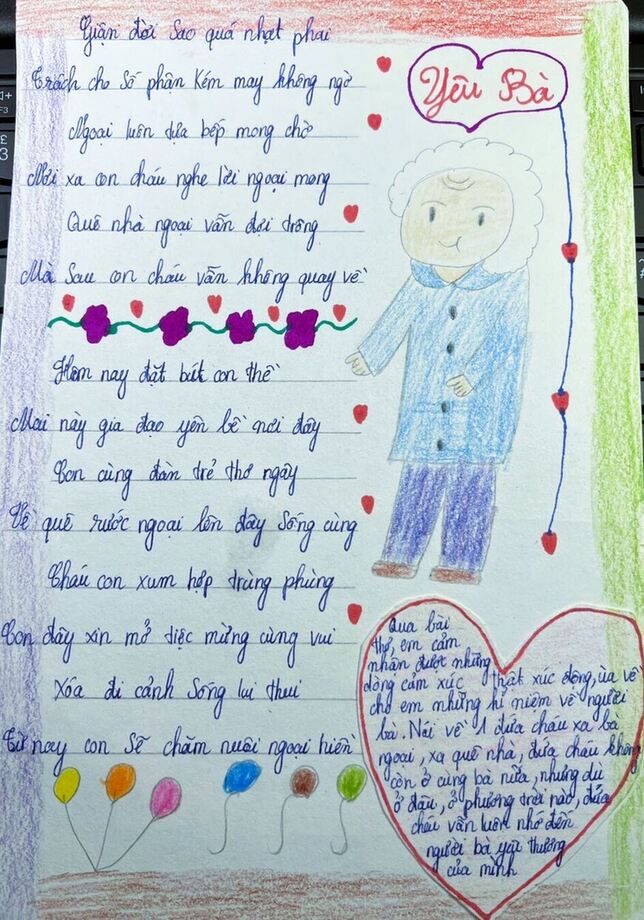 Giận đời sao quá nhạt phai
Trách cho số phận kém may không ngờ
Ngoại luôn tựa bếp mong chờ
Nơi xa con cháu nghe lời ngoại mong
Quê nhà ngoại vẫn đợi trông
Mà sau con cháu vẫn không quay về
Hôm nay đặt bút con thề
Mai này gia đạo yên bề nơi đây
Con cùng đàn trẻ thơ ngây
Về quê rước ngoại lên đây sống cùng
Cháu con xum hợp trùng phùng
Con đây xin mở tiệc mừng cùng vui
Xóa đi cảnh sống lui thui
Từ nay con sẽ chăm nuôi ngoại hiền
Yêu Bà
Qua bài
thơ, em cảm
nhận được những
dòng cảm xúc thật xúc động, ùa về
cho em những kỉ niệm về người
bà. Nói về 1 đứa cháu xa bà
ngoại, xa quê nhà, đứa cháu không
còn ở cùng bà nữa, nhưng dù
ở đâu, ở phương trời nào, đứa
cháu vẫn luôn nhớ đến
người bà yêu thương
của mình